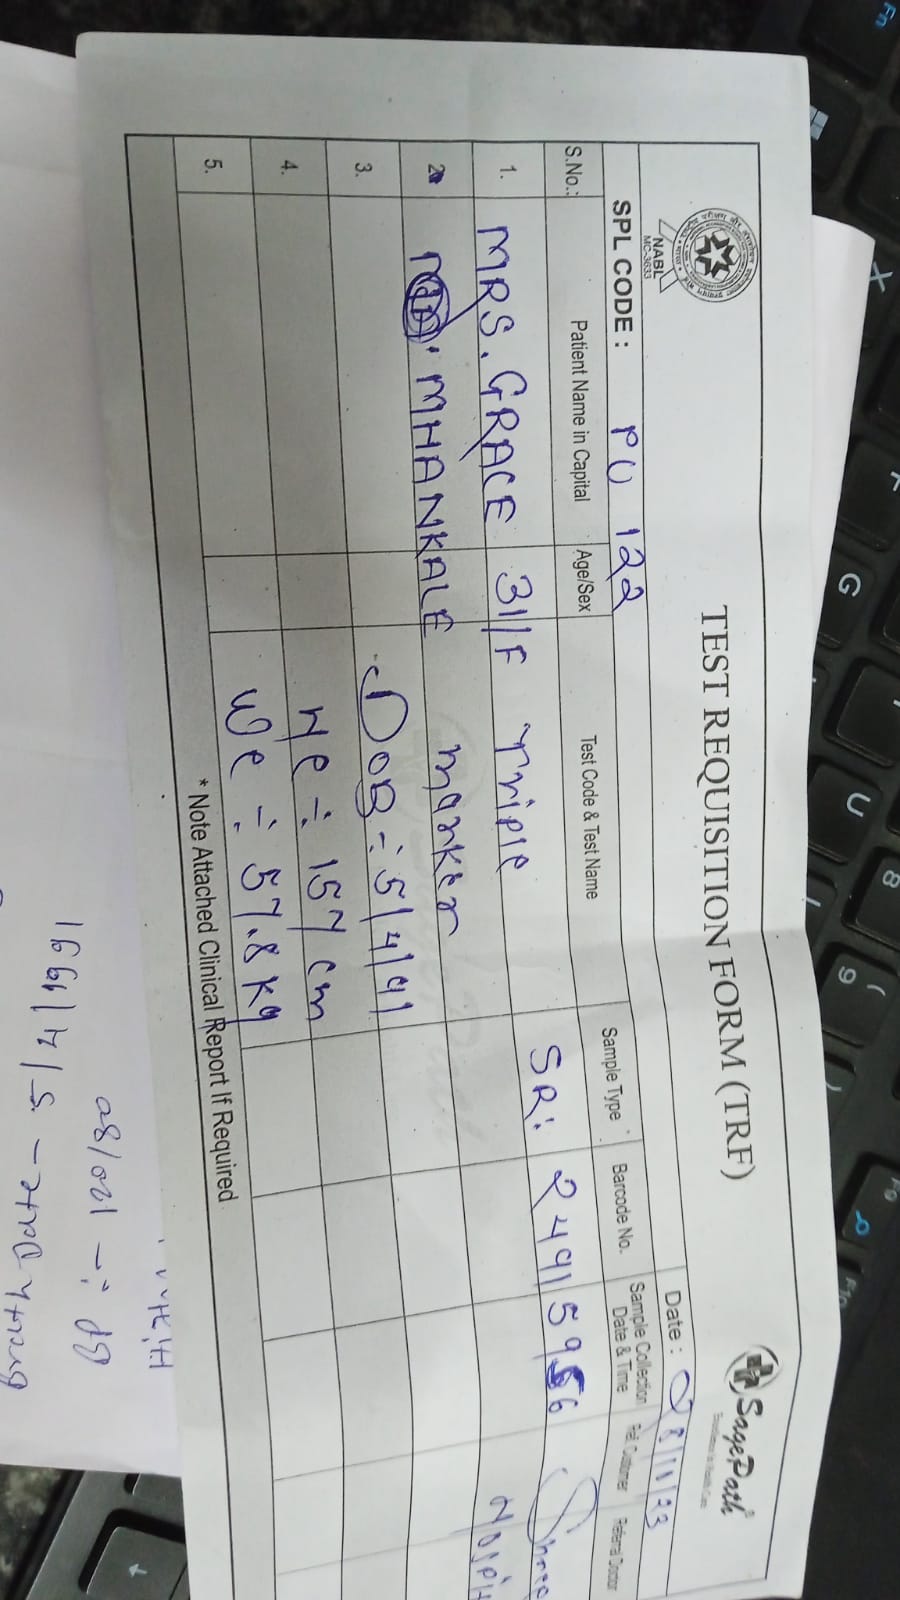 TEST REQUISITION FORM (TRF)
SagePath
NABL
MC-3633
Date : 08/11/23
SPL CODE : PU 122
S.No.: Patient Name in Capital Age/Sex Test Code & Test Name Sample Type Barcode No. Sample Collection Date & Time Ref. Customer Referral Doctor
1. MRS. GRACE 31/F Triple SR: 24915956
2 MHANKALE marker
3. DOB - 5/4/91
4. He - 157 cm
5. We - 57.8 kg
* Note Attached Clinical Report If Required
BP :- 120/80
Birth Date - 5/4/1991